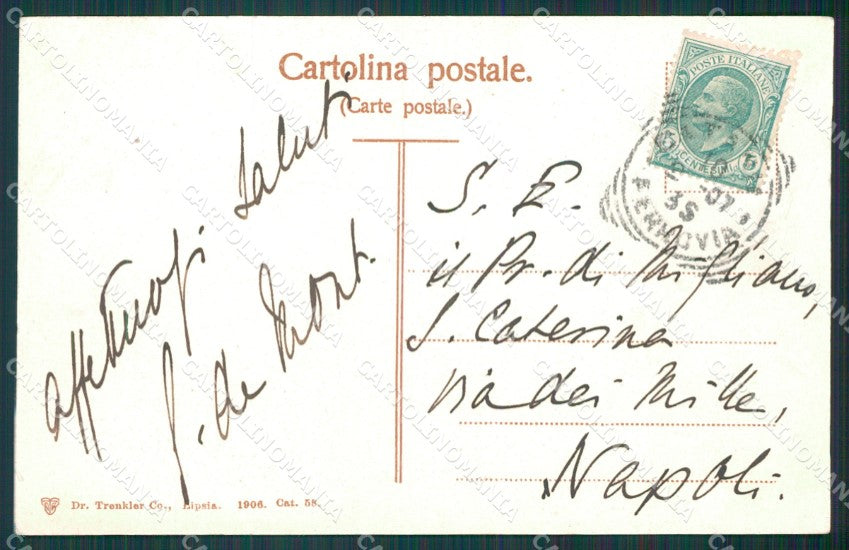 Cartolina postale.
(Carte postale.)
POSTE ITALIANE
CENTESIMI
FERROVIA
affettuosi saluti
G. de Mont.
S. E.
il Pr. di Migliano,
S. Caterina
via dei Mille,
Napoli.
Dr. Trenkler Co., Lipsia. 1906. Cat. 58.
CARTOLINOMANIA